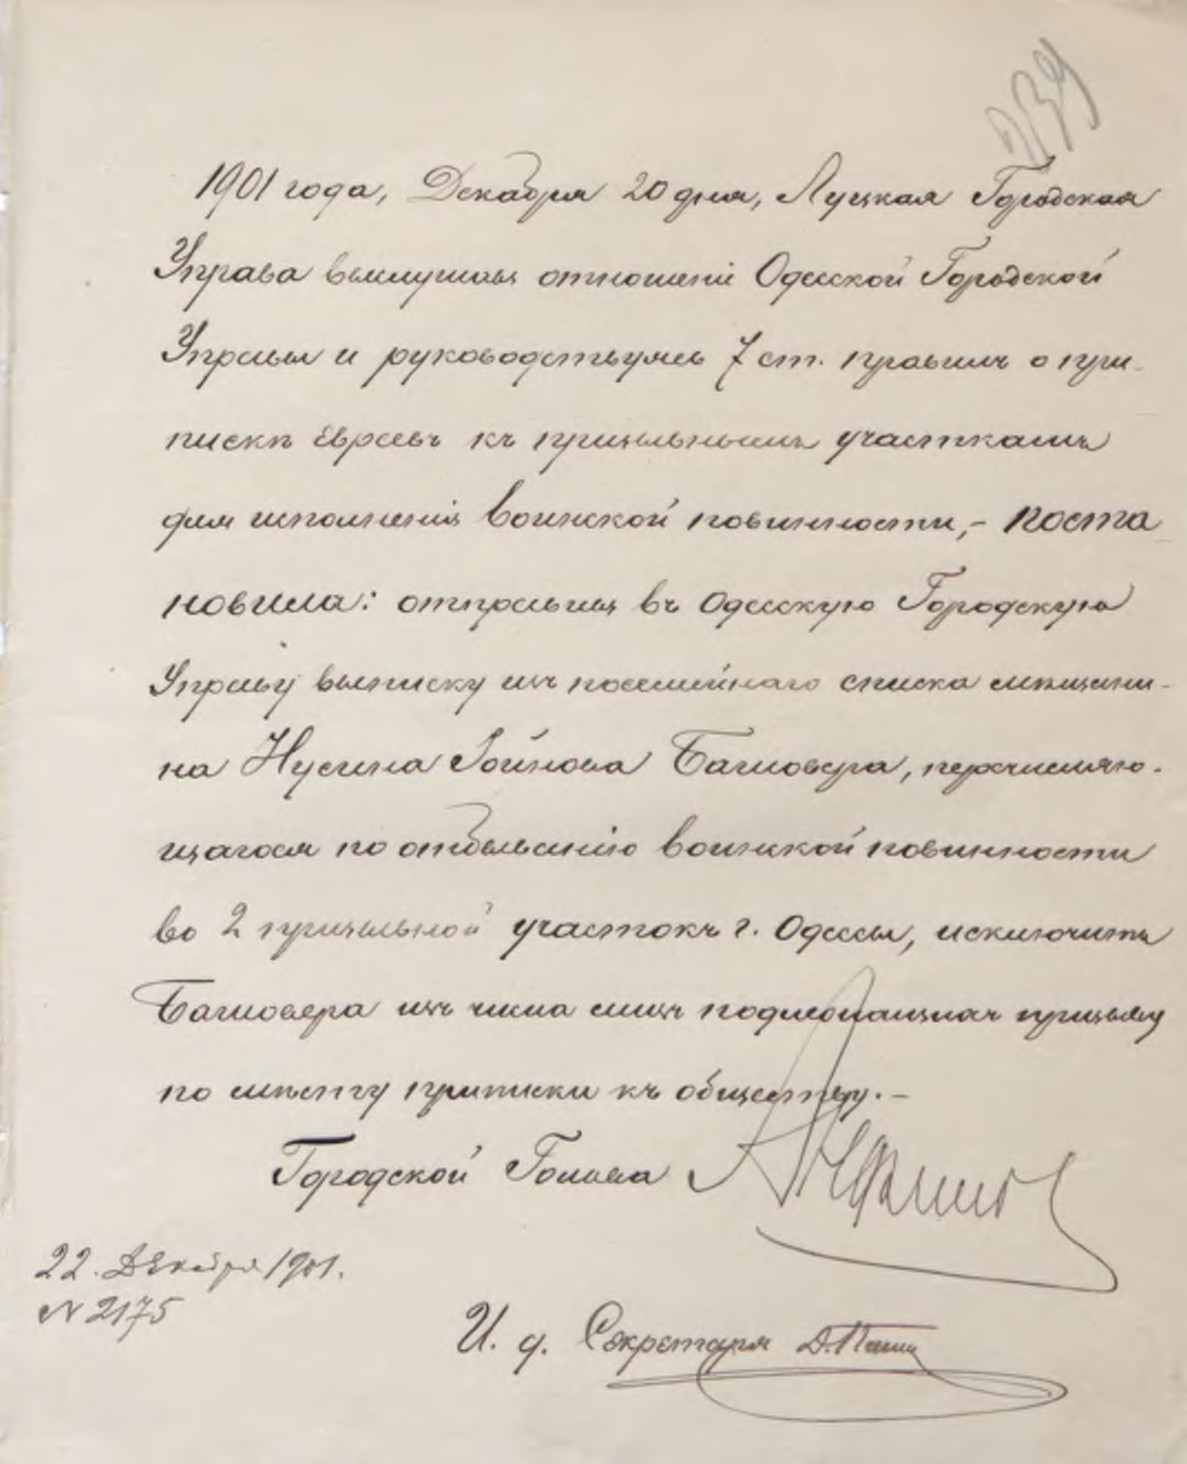 239
1901 года, Декабря 20 дня, Луцкая Городская
Управа выслушавъ отношеніе Одесской Городской
Управы и руководствуясь 7 ст. правилъ о при-
пискѣ Евреевъ къ призывнымъ участкамъ
для исполненія воинской повинности,- поста
новила: отправить въ Одесскую Городскую
Управу выписку изъ посемейнаго списка мѣщани-
на Нусина Бапшовера, перечисляю-
щагося по отбыванію воинской повинности
во 2 призывной участокъ г. Одессы, исключить
изъ числа лицъ подлежащихъ призыву
по мѣсту приписки къ обществу.-
Городской Голова
22. Декабря 1901.
N 2175
И. д. Секретаря